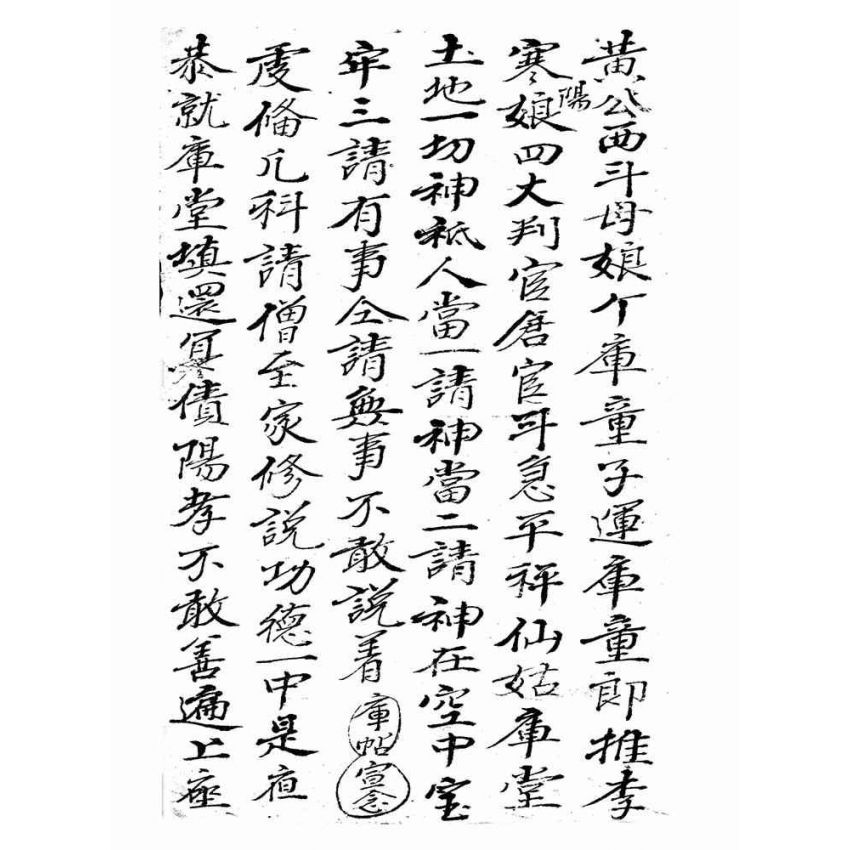 黃公西斗母娘个庫童子運庫童郎推李
寒陽娘四大判官唇官斗急平祥仙姑庫堂
土地一切神祇人當一請神當二請神在空中宝
牢三請有事仝請無事不敢說着庫帖宣念
虔俻几科請僧至家修說功德一中是夜
恭就庫堂填還冥債陽孝不敢善遍上座